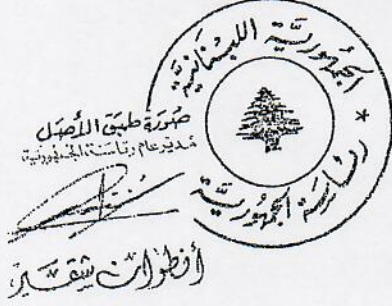 الجمهورية اللبنانية
رئاسة الجمهورية
صورة طبق الأصل
مدير عام رئاسة الجمهورية
أنطوان شقير